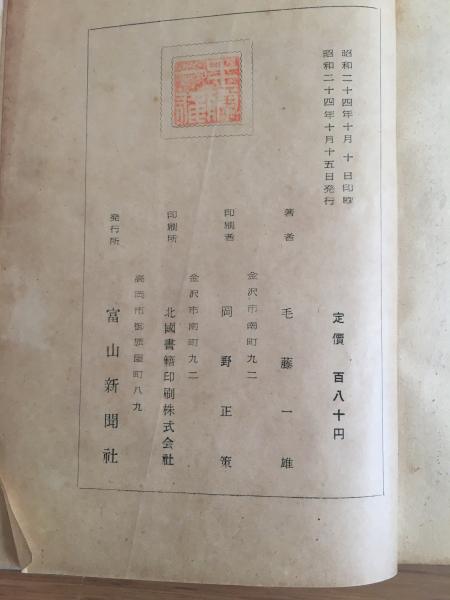 昭和二十四年十月 十 日印刷
昭和二十四年十月十五日発行
定價 百八十円
著者 毛藤一雄
金沢市南町九二
印刷者 岡野正策
金沢市南町九二
印刷所 北國書籍印刷株式会社
高岡市御旅屋町八九
発行所 富山新聞社